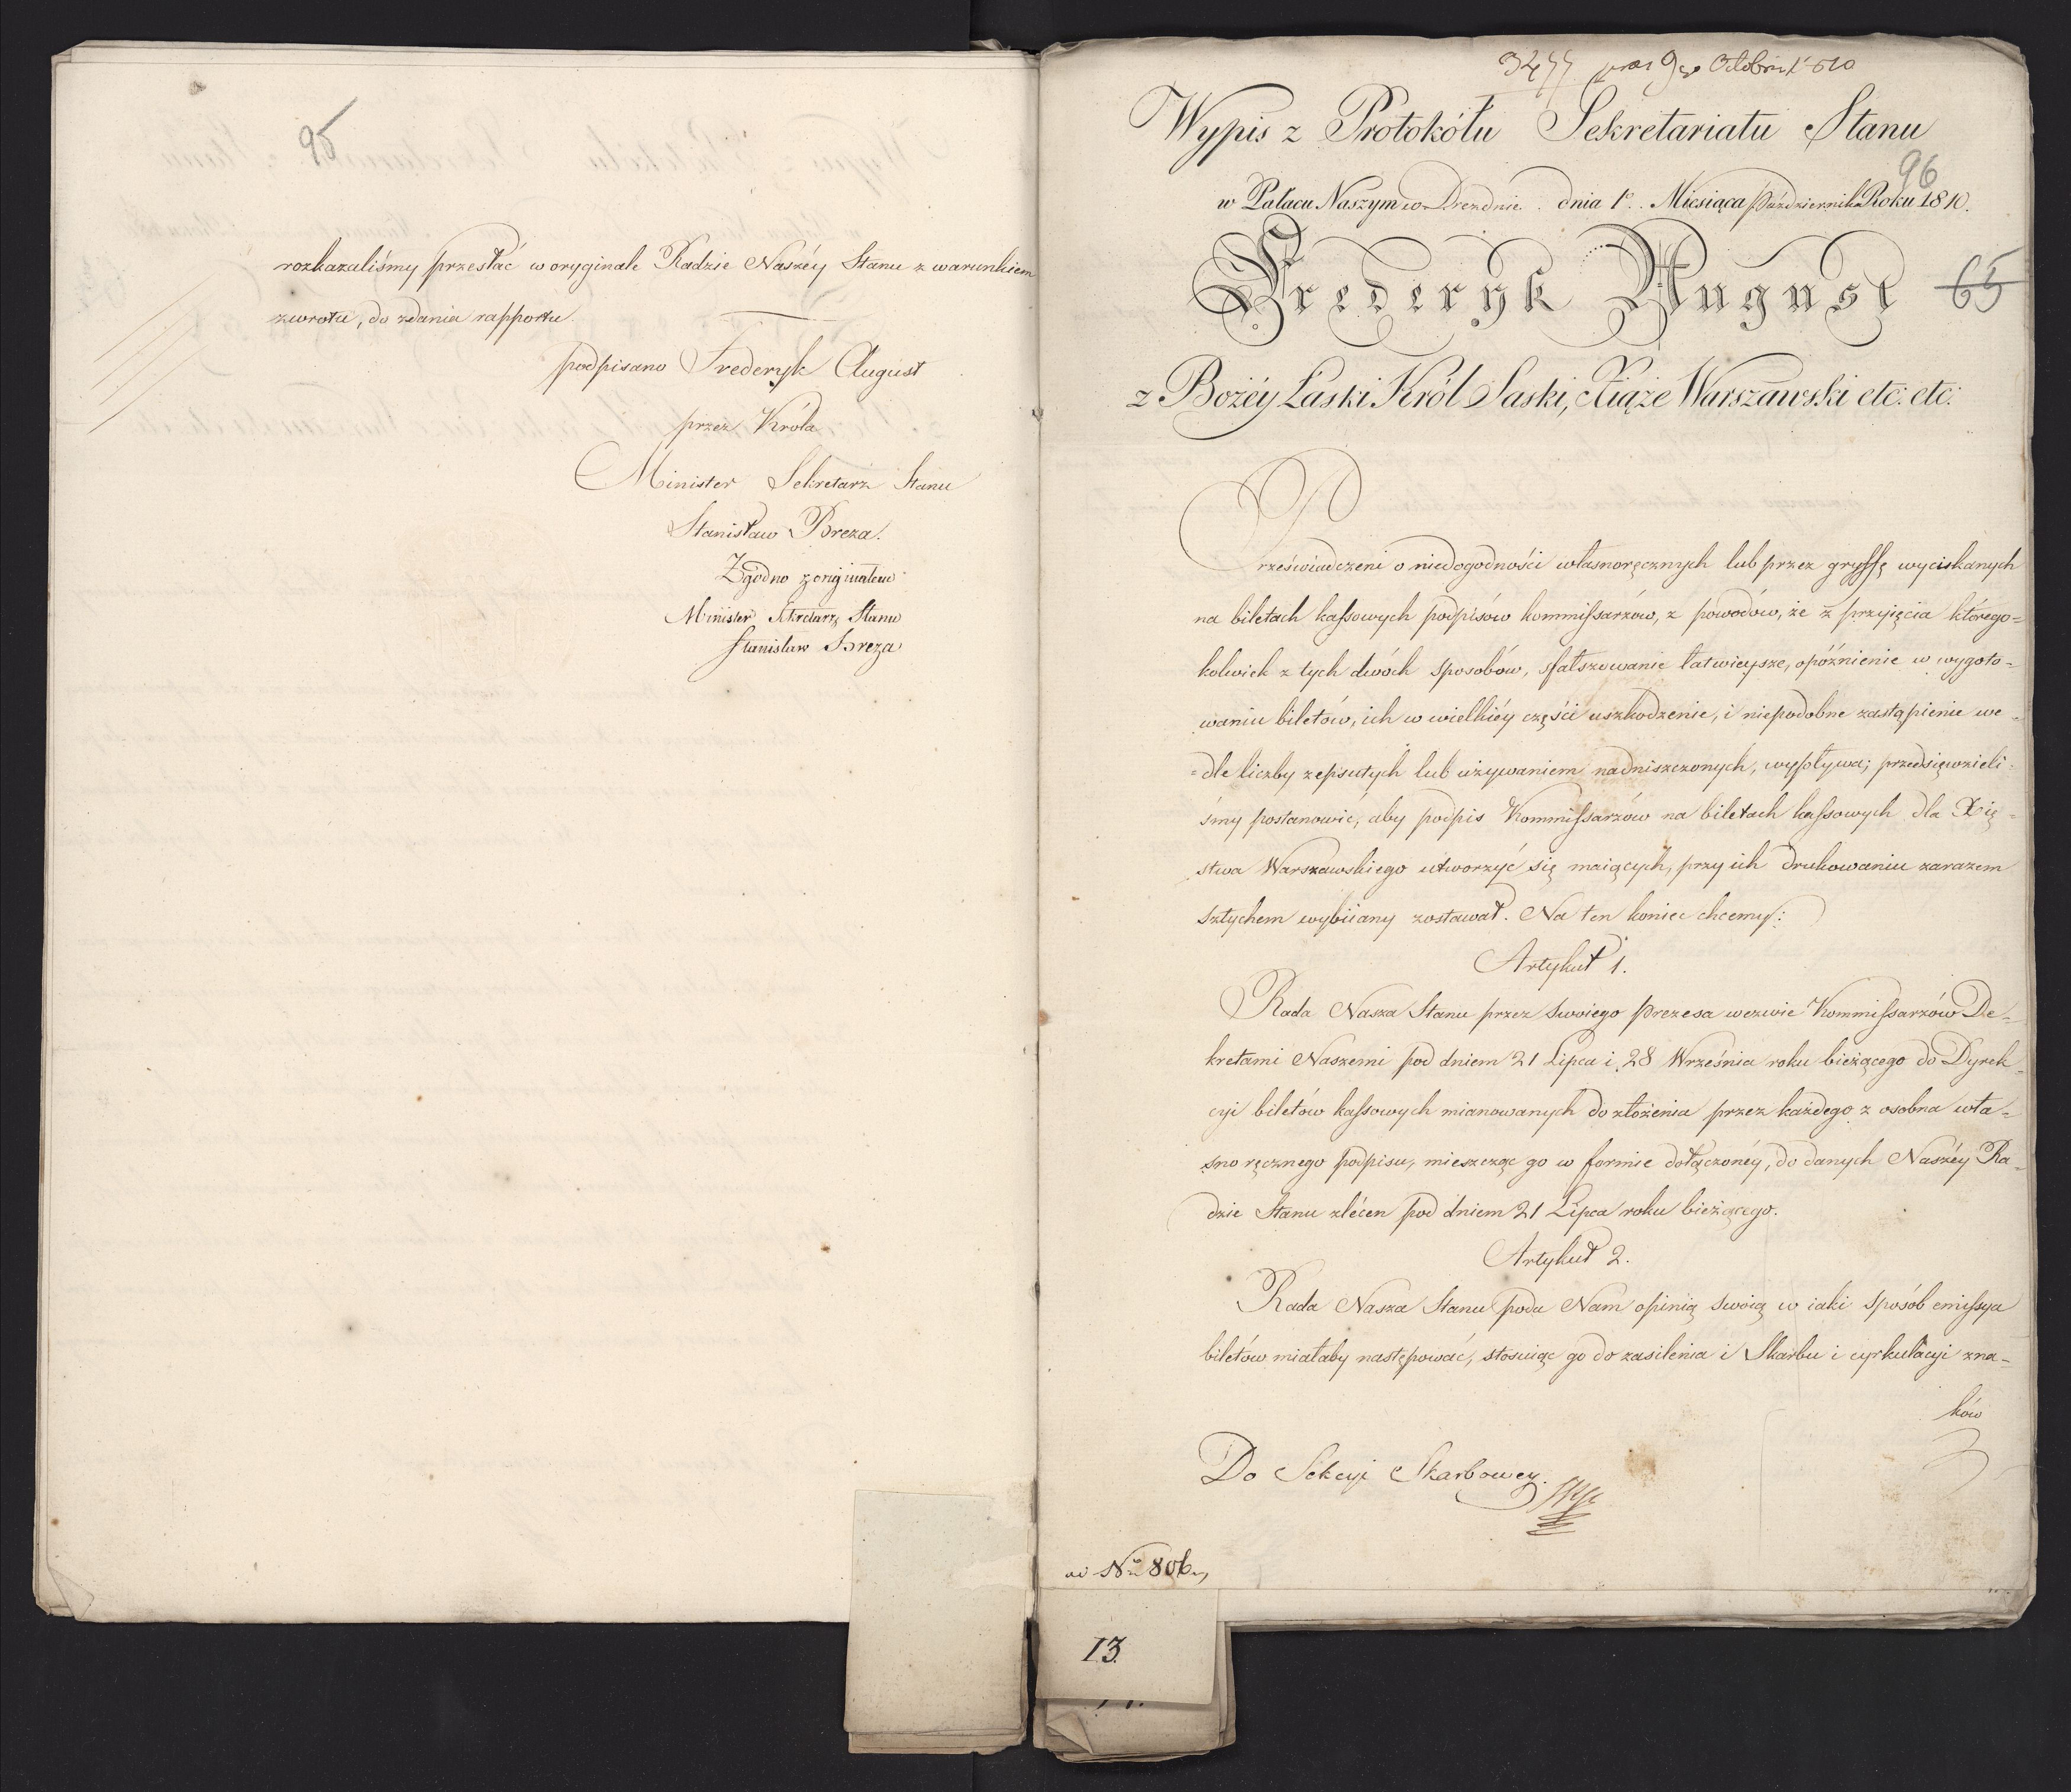 95
rozkazaliśmy przesłać w oryginale Radzie Naszéy Stanu z warunkiem
zwrotu, do zdania rapportu.
podpisano Frederyk August
przez Króla
Minister Sekretarz Stanu
Stanisław Breza.
Zgodno z originałem
Minister Sekretarz Stanu
Stanisław Breza
3477 9go Octobris
Wypis z Protokółu Sekretariatu Stanu
96
w Pałacu Naszym w Dreznie dnia 1º Miesiąca Października Roku 1810.
Frederyk August
65
z Bożéy Łaski Król Saski, Xiąże Warszawski etc: etc:
Przeświadczeni o niedogodności własnoręcznych lub przez gryffę wyciskanych
na biletach kassowych podpisów kommissarzów, z powodów, że z przyjęcia którego=
kolwiek z tych dwóch sposobów, sfałszowanie łatwieysze, opóźnienie w wygoto=
waniu biletów, ich w wielkiéy części uszkodzenie, i niepodobne zastąpienie we=
=dle liczby zepsutych lub używaniem nadniszczonych, wypływa; przedsięwzieli=
śmy postanowić, aby podpis Kommissarzów na biletach kassowych dla Xię=
stwa Warszawskiego utworzyć się maiących, przy ich drukowaniu zarazem
sztychem wybiiany zostawał. Na ten koniec chcemy:
Artykuł 1.
Rada Nasza Stanu przez swoiego Prezesa wezwie Kommissarzów De=
kretami Naszemi pod dniem 21 Lipca i 28 Września roku bieżącego do Dyrek=
cyi biletów kassowych mianowanych do złożenia przez każdego z osobna wła=
snoręcznego podpisu, mieszcząc go w formie dołączonéy, do danych Naszéy Ra=
dzie Stanu zleceń pod dniem 21 Lipca roku bieżącego.
Artykuł 2.
Rada Nasza Stanu poda Nam opinią swoią w iaki sposób emissya
biletów miałaby następować, stosuiąc go do zasilenia i Skarbu i cyrkulacyi zna=
ków
Do Sekcyi Skarbowey.
ad Nro 806
13.